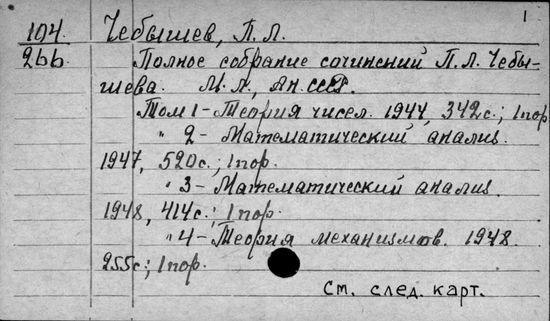 1
104. Чебышев, П. Л.
266 Полное собрание сочинений П. Л. Чебы-
шева. М. Л., Ан. СССР.
Том 1 - Теория чисел. 1944, 342 с.; 1 пор.
" 2 - Математический анализ.
1947, 520 с.; 1 пор.
" 3 - Математический анализ.
1948, 414 с.; 1 пор.
" 4 - Теория механизмов. 1948.
255 с.; 1 пор.
См. след. карт.